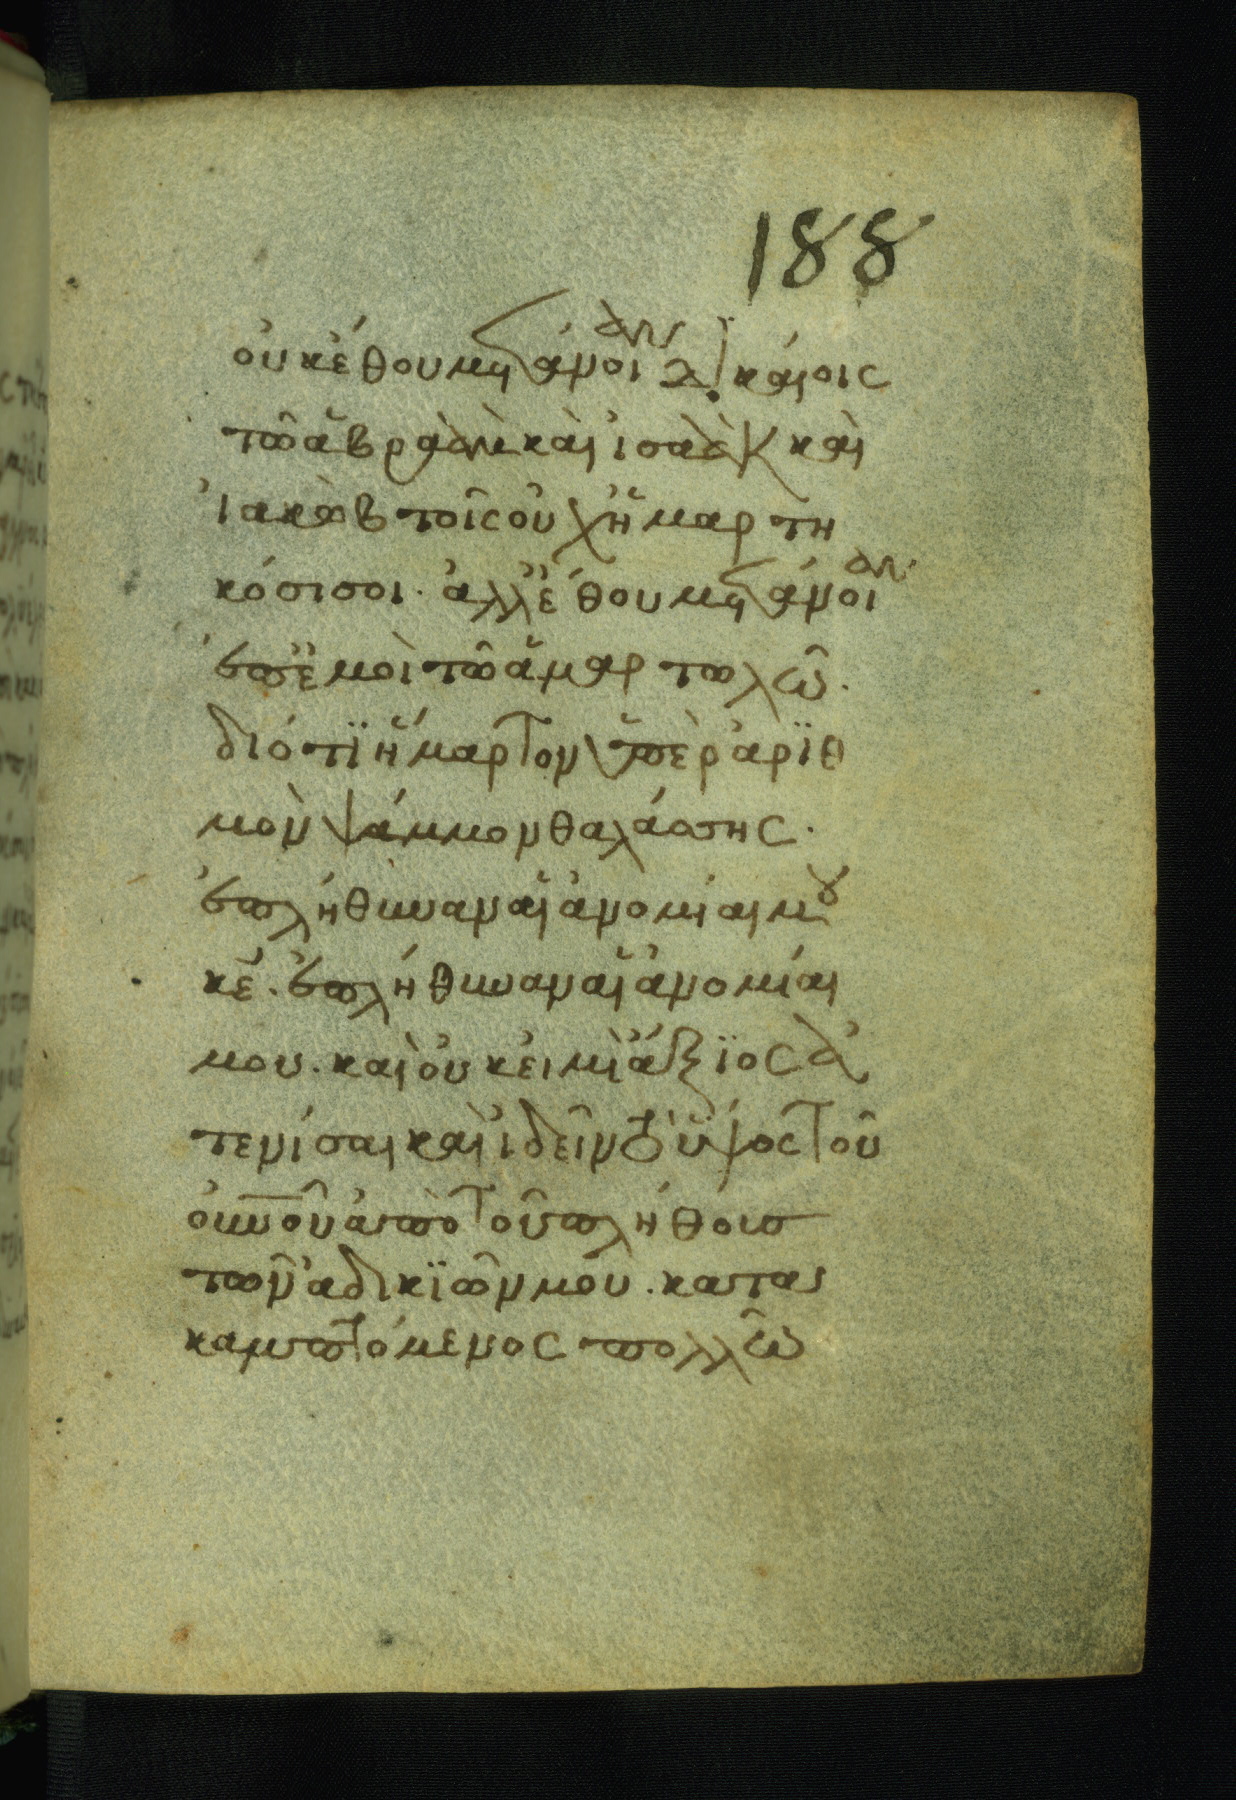 188
οὐκ ἔθου μετάνοιαν δικαίοις
τῶ ἀβραὰμ καὶ ἰσαὰκ καὶ
ἰακὼβ τοῖς οὐχ ἡμαρτη
κόσι σοι· ἀλλ' ἔθου μετάνοιαν
ἐπ' ἐμοὶ τῶ ἁμαρτωλῶ.
διότι ἥμαρτον ὑπὲρ ἀριθ
μὸν ψάμμου θαλάσσης.
ἐπλήθυναν αἱ ἀνομίαι μου
κε. ἐπλήθυναν αἱ ἀνομίαι
μου. καὶ οὐκ εἰμὶ ἄξιος ἀ
τενίσαι καὶ ἰδεῖν τὸ ὕψος τοῦ
οὐνοῦ ἀπὸ τοῦ πλήθους
τῶν ἀδικιῶν μου. κατα
καμπτόμενος πολλῶ